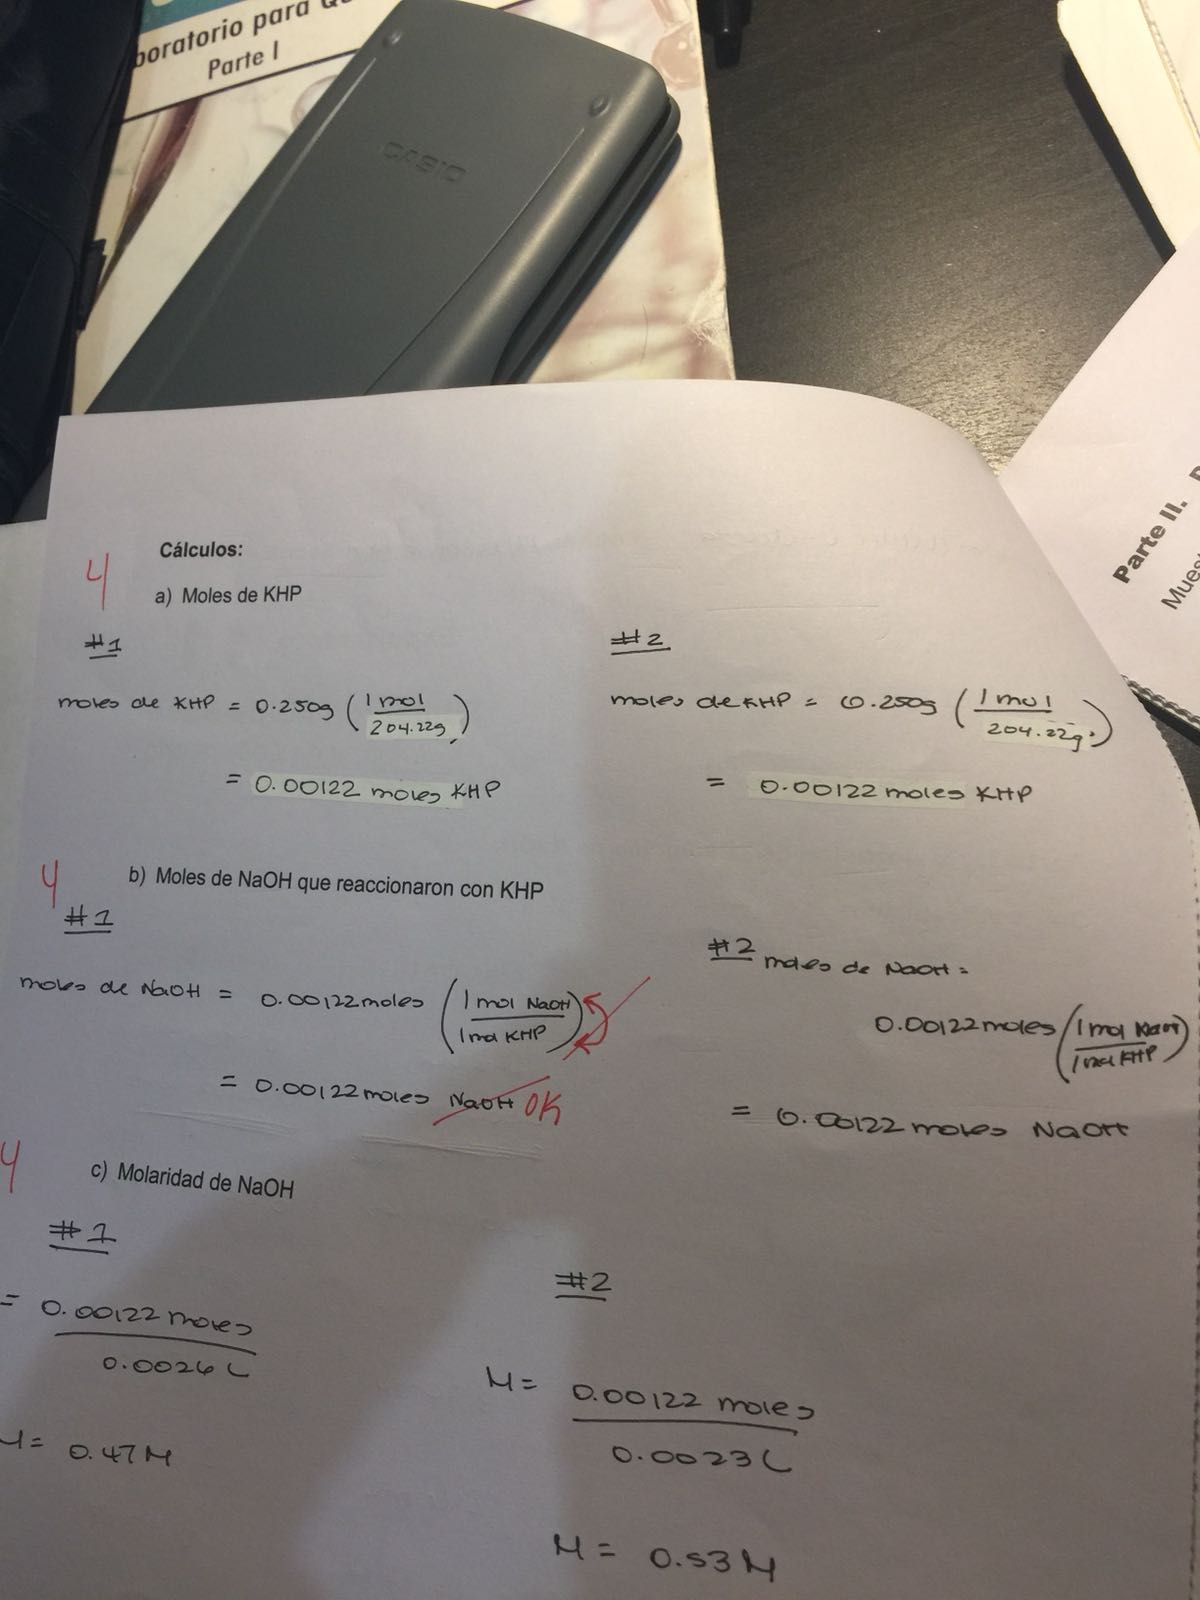 boratorio para Q
Parte I
CASIO
Parte II.
Mues
Cálculos:
4
a) Moles de KHP
#1
moles de KHP = 0.250g (1 mol / 204.22g)
= 0.00122 moles KHP
#2
moles de KHP = 0.250g (1 mol / 204.22g)
= 0.00122 moles KHP
4
b) Moles de NaOH que reaccionaron con KHP
#1
moles de NaOH = 0.00122 moles (1 mol NaOH / 1 mol KHP)
= 0.00122 moles NaOH OK
#2 moles de NaOH =
0.00122 moles (1 mol NaOH / 1 mol KHP)
= 0.00122 moles NaOH
4
c) Molaridad de NaOH
#1
= 0.00122 moles
0.0026 L
M = 0.47 M
#2
M = 0.00122 moles
0.0023 L
M = 0.53 M